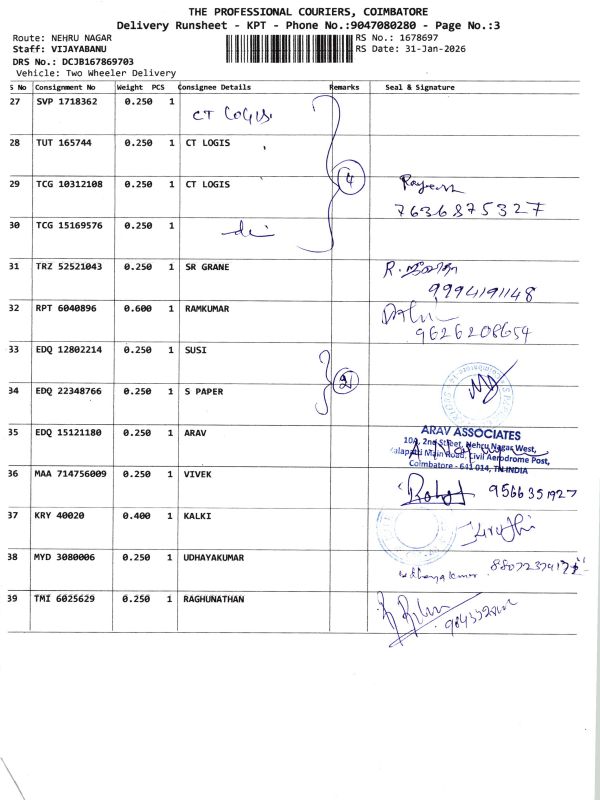 THE PROFESSIONAL COURIERS, COIMBATORE
Delivery Runsheet - KPT - Phone No.:9047080280 - Page No.:3
Route: NEHRU NAGAR
RS No.: 1678697
Staff: VIJAYABANU
RS Date: 31-Jan-2026
DRS No.: DCJB167869703
Vehicle: Two Wheeler Delivery
S No Consignment No Weight PCS Consignee Details Remarks Seal & Signature
27 SVP 1718362 0.250 1 CT LOGIS
28 TUT 165744 0.250 1 CT LOGIS
29 TCG 10312108 0.250 1 CT LOGIS 4
7636875327
30 TCG 15169576 0.250 1
31 TRZ 52521043 0.250 1 SR GRANE
9994191148
32 RPT 6040896 0.600 1 RAMKUMAR
9626208654
33 EDQ 12802214 0.250 1 SUSI
2
34 EDQ 22348766 0.250 1 S PAPER
35 EDQ 15121180 0.250 1 ARAV
ARAV ASSOCIATES
10A, 2nd Street, Nehru Nagar West,
Main Road, Civil Aerodrome Post,
Coimbatore - 641 014, TN INDIA
36 MAA 714756009 0.250 1 VIVEK 9566351927
37 KRY 40020 0.400 1 KALKI
38 MYD 3080006 0.250 1 UDHAYAKUMAR
udhayakumar
39 TMI 6025629 0.250 1 RAGHUNATHAN